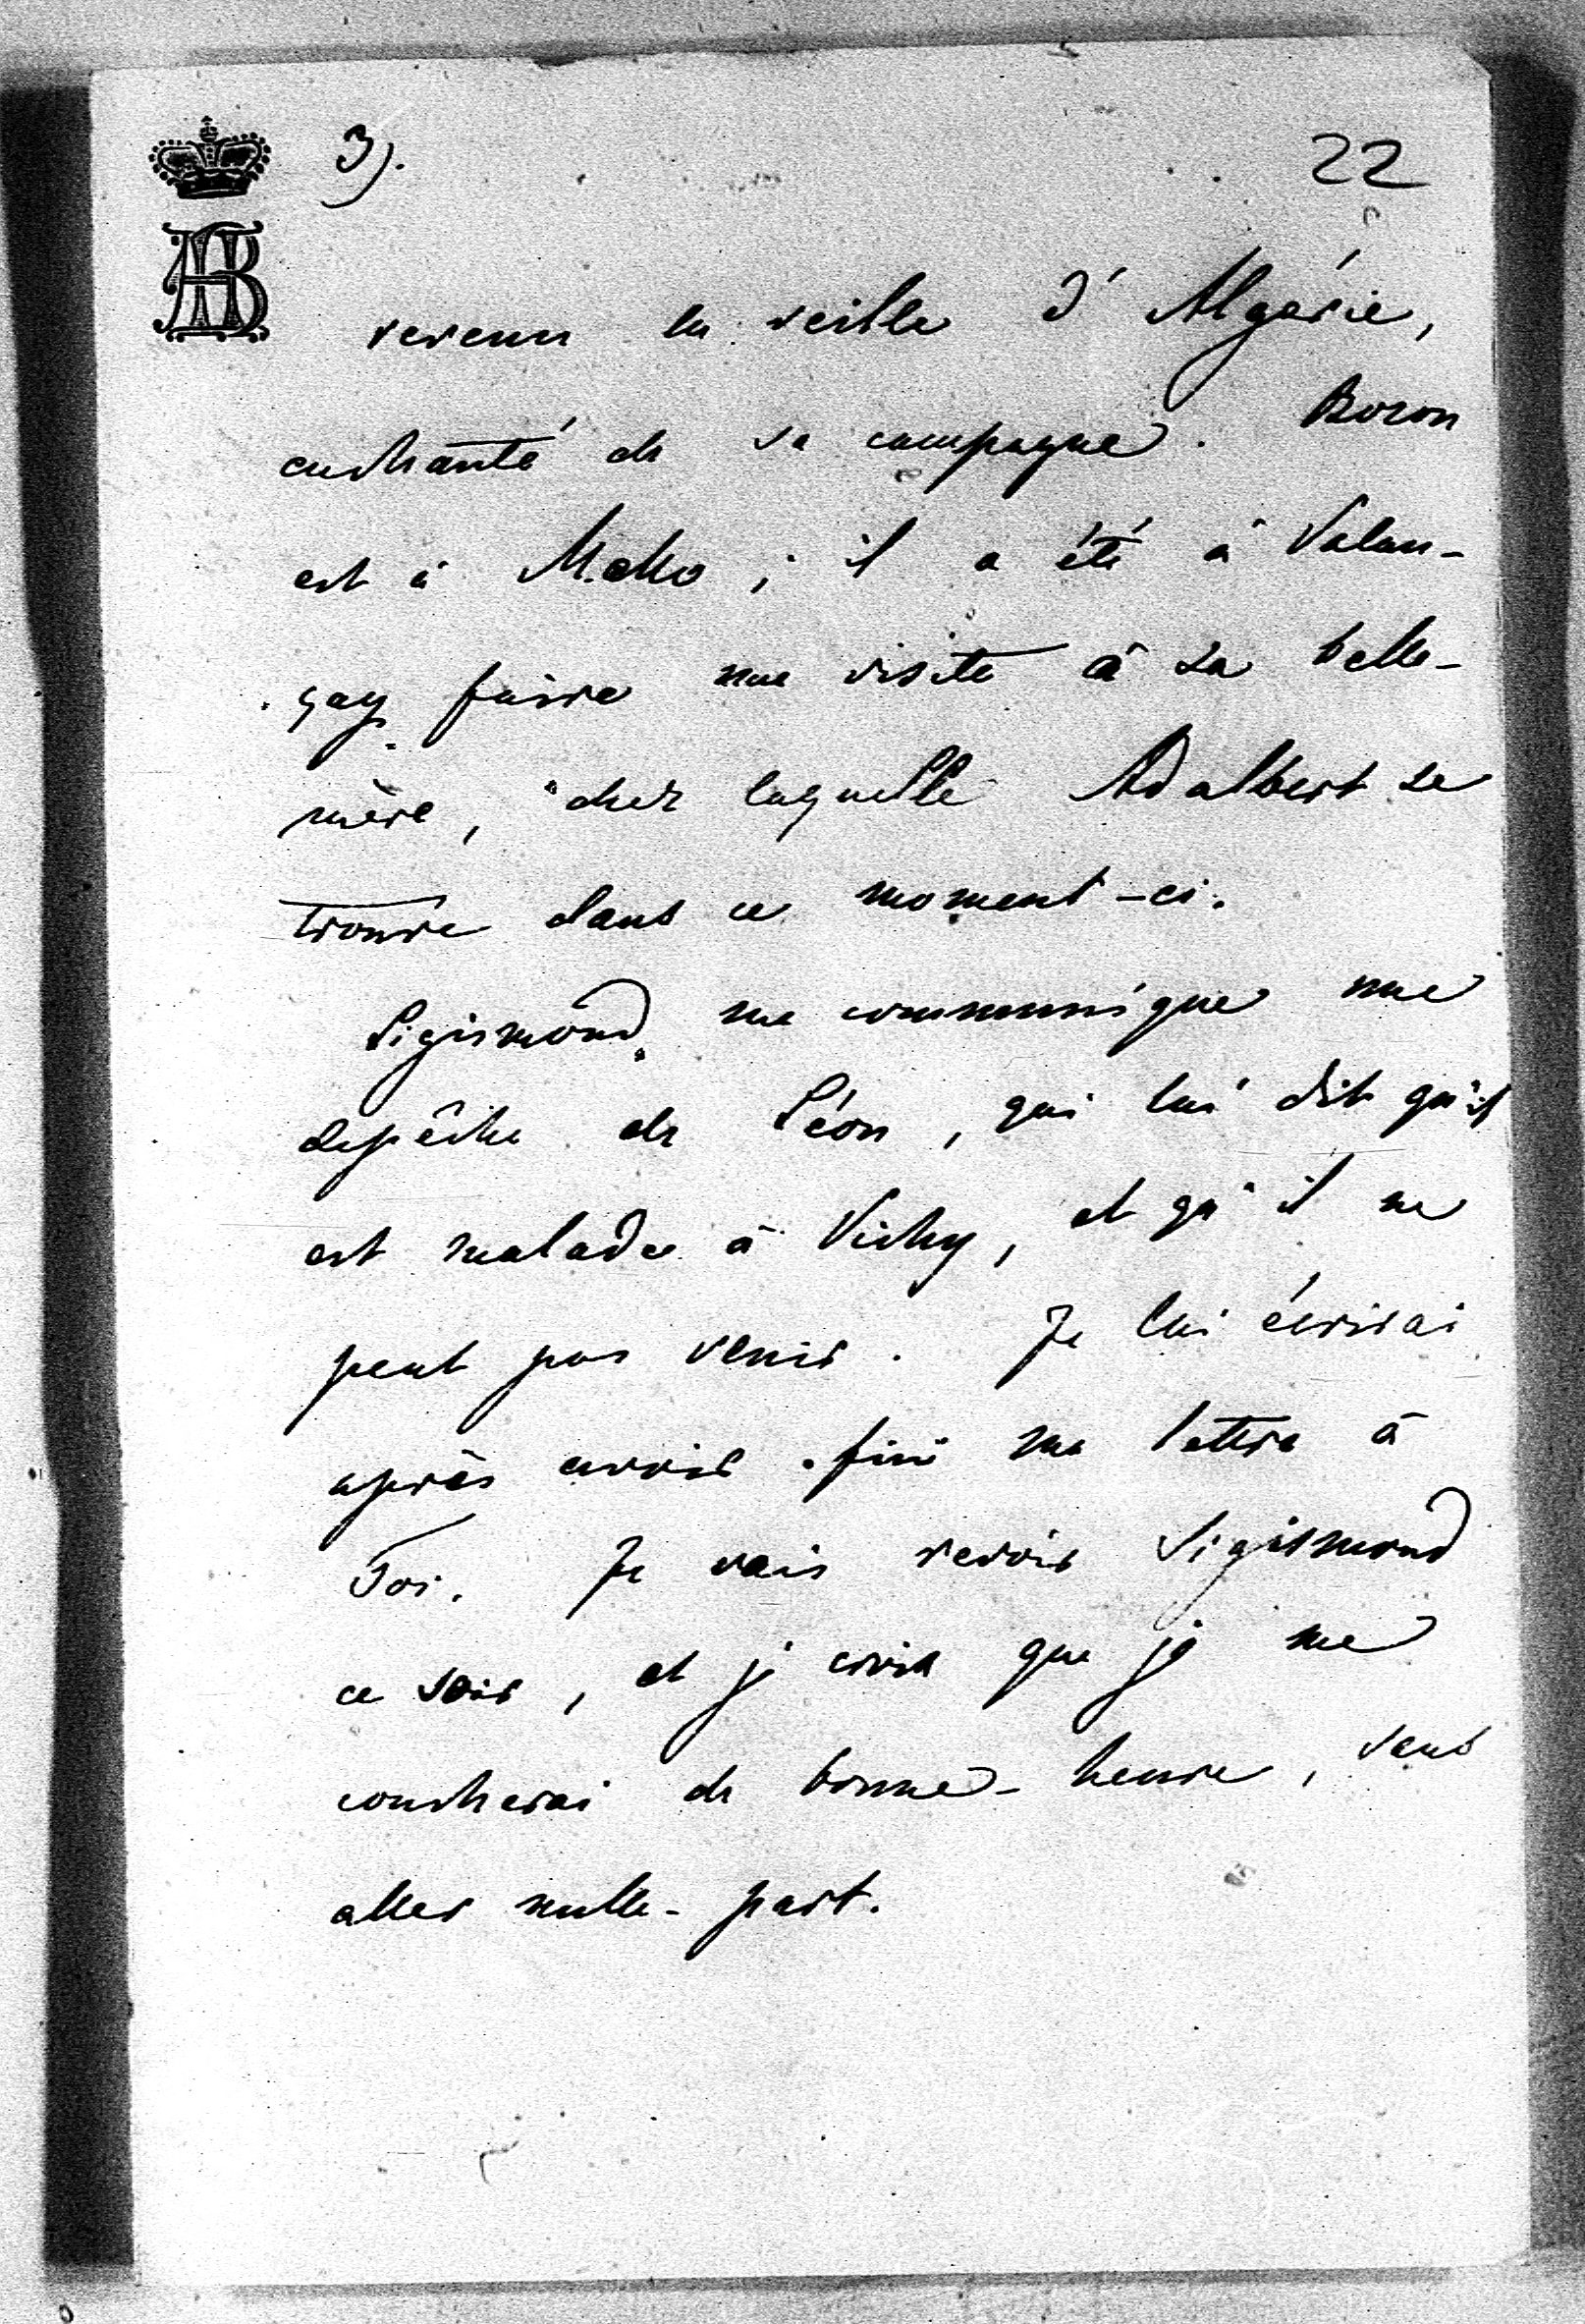 3). 22
AB
revenu la veille d'Algérie,
enchanté de sa campagne. Boson
est à Mello ; il a été à Valen-
çay faire une visite à sa belle-
mère, chez laquelle Adalbert se
trouve dans ce moment-ci.
Sigismond me communique une
depêche de Léon, qui lui dit qu'il
est malade à Vichy, et qu'il ne
peut pas venir. Je lui écrirai
après avoir fini ma lettre à
Toi. Je vais revoir Sigismond
ce soir, et je crois que je me
coucherai de bonne-heure, sans
aller nulle-part.